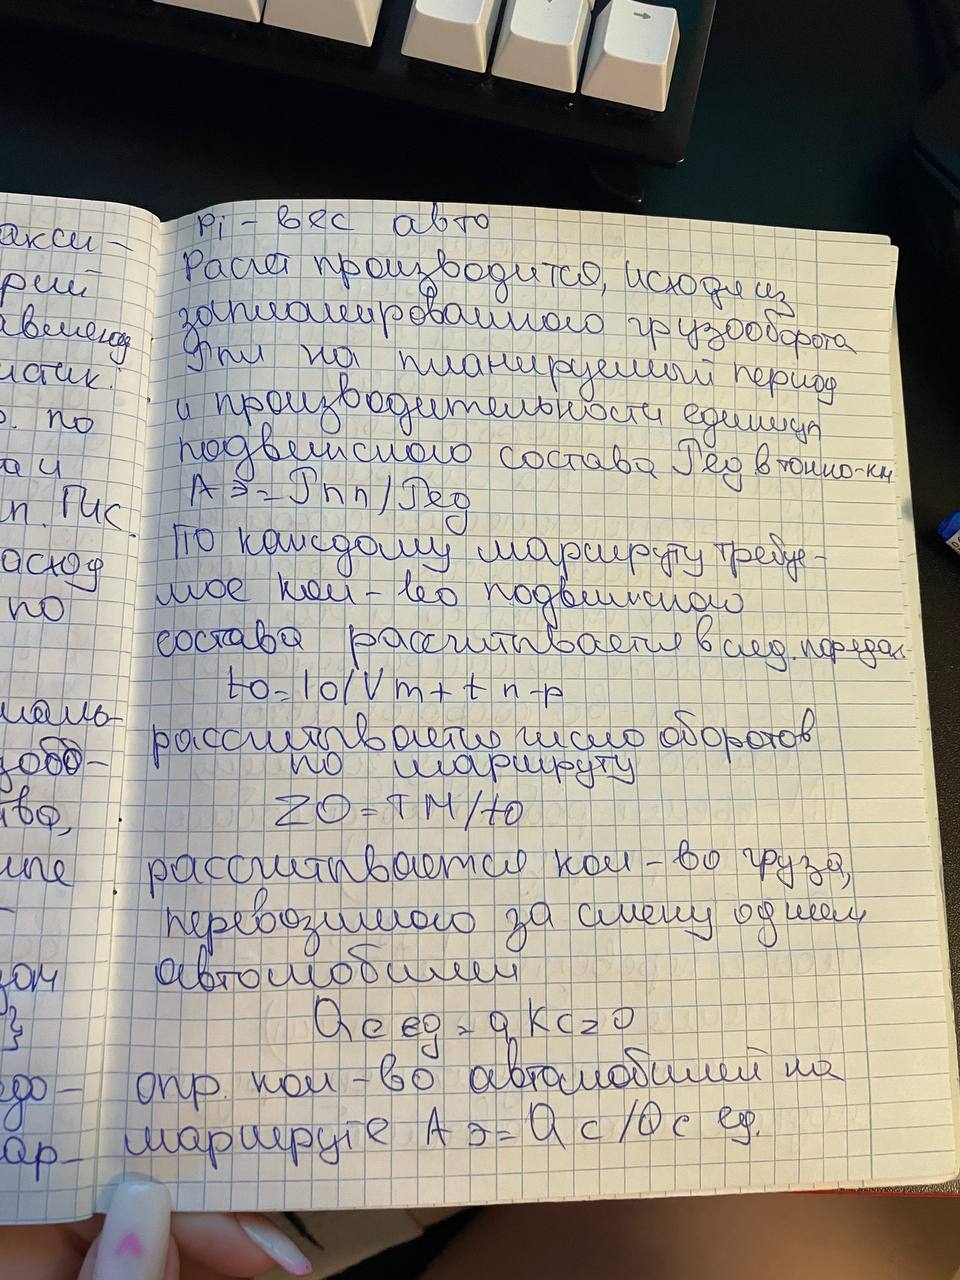 акси-
рий
авменд
истик.
р. по
а и
п. ГИС
асход
по
маль-
зобо-
тво,
ипе
зом
едо-
ар-
pi - вес авто
Расчёт производится, исходя из
запланированного грузооборота
Гпл на планируемый период
и производительности единицы
подвижного состава Гед в тонно-км
А э = Г пл / Гед
По каждому маршруту требуе-
мое кол-во подвижного
состава рассчитывается в след. порядк
to = lo / Vm + t n-p
рассчитывается число оборотов
по маршруту
ZO = TM / to
рассчитывается кол-во груза,
перевозимого за смену одним
автомобилем
Qс ед = q Kc zo
опр. кол-во автомобилей на
маршруте А э = Q с / Qс ед.